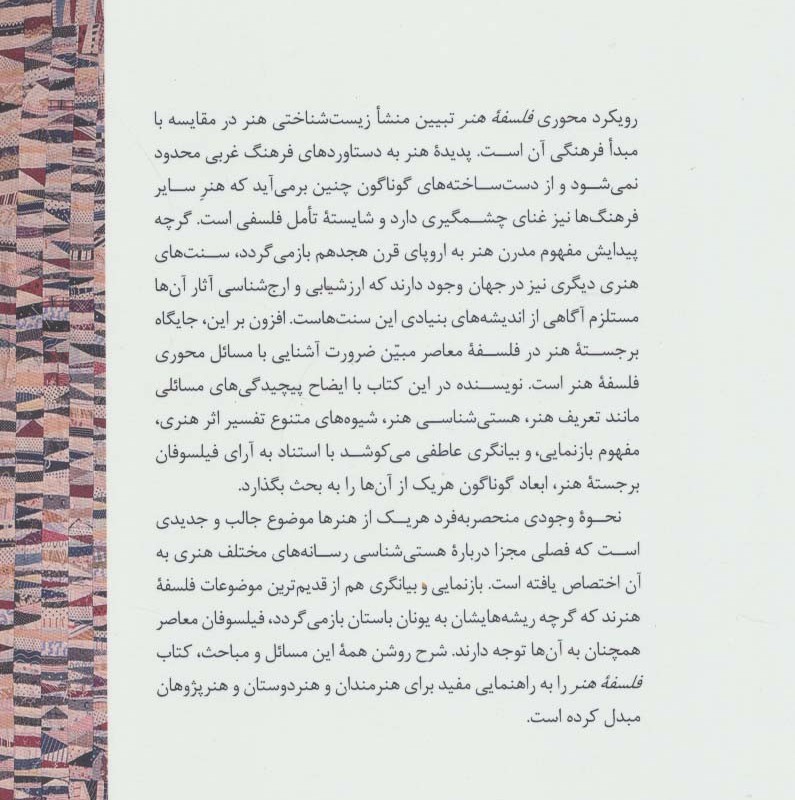 رویکرد محوری فلسفهٔ هنر تبیین منشأ زیست‌شناختی هنر در مقایسه با
مبدأ فرهنگی آن است. پدیدهٔ هنر به دستاوردهای فرهنگ غربی محدود
نمی‌شود و از دست‌ساخته‌های گوناگون چنین برمی‌آید که هنرِ سایر
فرهنگ‌ها نیز غنای چشمگیری دارد و شایستهٔ تأمل فلسفی است. گرچه
پیدایش مفهوم مدرن هنر به اروپای قرن هجدهم بازمی‌گردد، سنت‌های
هنری دیگری نیز در جهان وجود دارند که ارزشیابی و ارج‌شناسی آثار آن‌ها
مستلزم آگاهی از اندیشه‌های بنیادی این سنت‌هاست. افزون بر این، جایگاه
برجستهٔ هنر در فلسفهٔ معاصر مبیّن ضرورت آشنایی با مسائل محوری
فلسفهٔ هنر است. نویسنده در این کتاب با ایضاح پیچیدگی‌های مسائلی
مانند تعریف هنر، هستی‌شناسی هنر، شیوه‌های متنوع تفسیر اثر هنری،
مفهوم بازنمایی، و بیانگری عاطفی می‌کوشد با استناد به آرای فیلسوفان
برجستهٔ هنر، ابعاد گوناگون هریک از آن‌ها را به بحث بگذارد.
نحوهٔ وجودی منحصربه‌فرد هریک از هنرها موضوع جالب و جدیدی
است که فصلی مجزا دربارهٔ هستی‌شناسی رسانه‌های مختلف هنری به
آن اختصاص یافته است. بازنمایی و بیانگری هم از قدیم‌ترین موضوعات فلسفهٔ
هنرند که گرچه ریشه‌هایشان به یونان باستان بازمی‌گردد، فیلسوفان معاصر
همچنان به آن‌ها توجه دارند. شرح روشن همهٔ این مسائل و مباحث، کتاب
فلسفهٔ هنر را به راهنمایی مفید برای هنرمندان و هنردوستان و هنرپژوهان
مبدل کرده است.